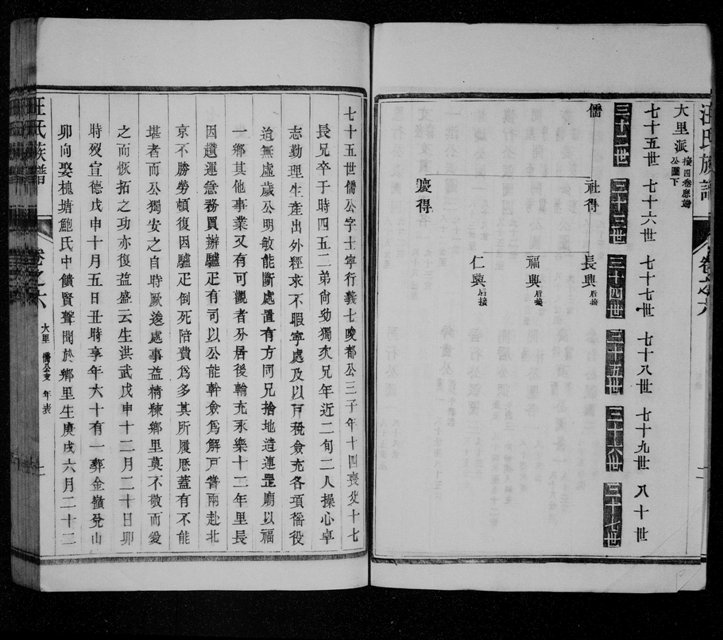 汪氏族譜
卷之六
大里派
公圖下
七十五世 七十六世 七十七世 七十八世 七十九世 八十世
三十二世 三十三世 三十四世 三十五世 三十六世 三十七世
儒
社得
長興 后接
福興 后接
仁興 后接
汪氏族譜
卷之六
大里 儒公支 年表
七十五世儒公字士寧行義七晙都公三子年十四喪父十七
長兄卒于時四五二弟尚幼獨次兄年近二旬二人操心卓
志勤理生產出外經求不暇寧處及以戶稅僉充各項徭役
迨無虛歲公明敏能斷處置有方同兄捨地造運壆廟以福
一鄉其他事業又有可觀者分居後輪充永樂十二年里長
因遞運急務買辦驢疋有司以公能幹僉為解戶嘗兩赴北
京不勝勞頓復因驢疋倒死陪費為多其所履歷蓋有不能
堪者而公獨安之自時厥後處事益精練鄉里莫不敬而愛
之而恢拓之功亦復益盛云生洪武戊申十二月二十日卯
時歿宣德戊申十月五日丑時享年六十有一葬金嶺兌山
卯向娶槐塘鮑氏中饋賢聲聞於鄉里生庚戌六月二十二